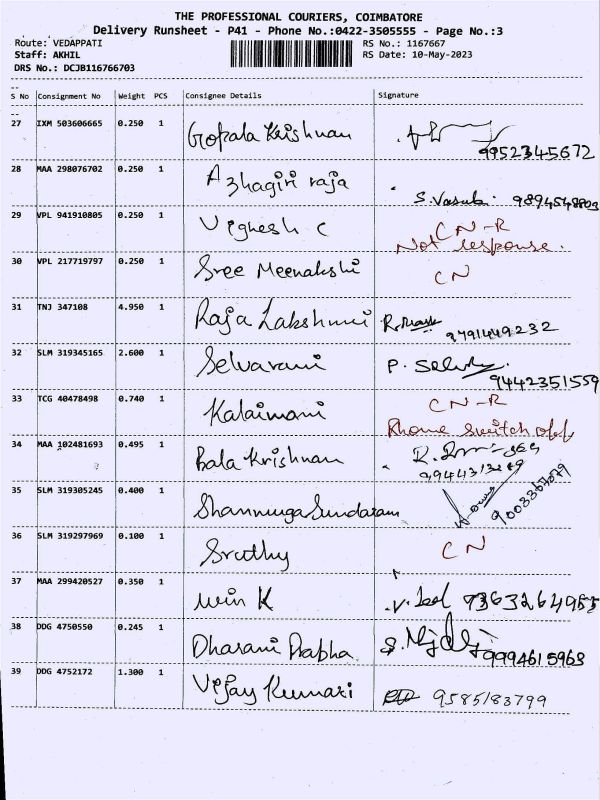 THE PROFESSIONAL COURIERS, COIMBATORE
Delivery Runsheet - P41 - Phone No.:0422-3505555 - Page No.:3
Route: VEDAPPATI RS No.: 1167667
Staff: AKHIL RS Date: 10-May-2023
DRS No.: DCJB116766703
S No Consignment No Weight PCS Consignee Details Signature
27 IXM 503606665 0.250 1 Gopala Krishnan
9952345672
28 MAA 298076702 0.250 1 Azhagiri raja
S. Vasuki
29 VPL 941910805 0.250 1 Vignesh C CN-R
Not response.
30 VPL 217719797 0.250 1 Sree Meenakshi CN
31 TNJ 347108 4.950 1 Raja Lakshmi
9791449232
32 SLM 319345165 2.600 1 Selvarani P. Selv
9442351559
33 TCG 40478498 0.740 1 Kalaimani CN-R
Phone switch off
34 MAA 102481693 0.495 1 Bala Krishnan
35 SLM 319305245 0.400 1 Shanmuga Sundaram
36 SLM 319297969 0.100 1 Srudhy CN
37 MAA 299420527 0.350 1 Win K
38 DDG 4750550 0.245 1 Dharani Prabha
9994615963
39 DDG 4752172 1.300 1 Vijay Kumari 9585183799